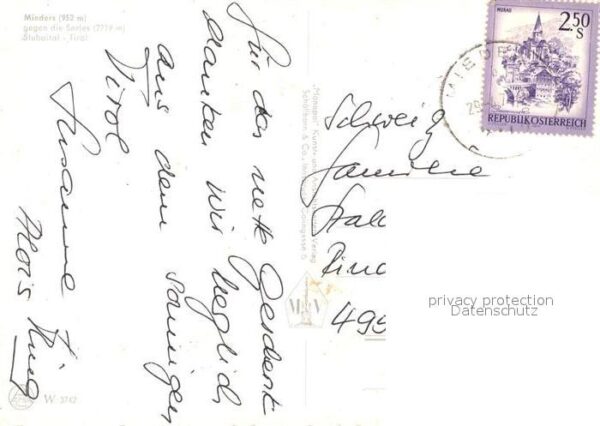 Mieders (952 m)
gegen die Serles (2719 m)
Stubaital - Tirol
Für das nette Geschenk
danken wir herzlich
aus dem sonnigen
Tirol
Susanne
Alois
"Monopol" Kunst- und Ansichtskarten Verlag
Schöllhorn & Co., Innsbruck
W 3762
MURAU
2.50
S
REPUBLIK ÖSTERREICH
Schweiz
Familie
privacy protection
Datenschutz